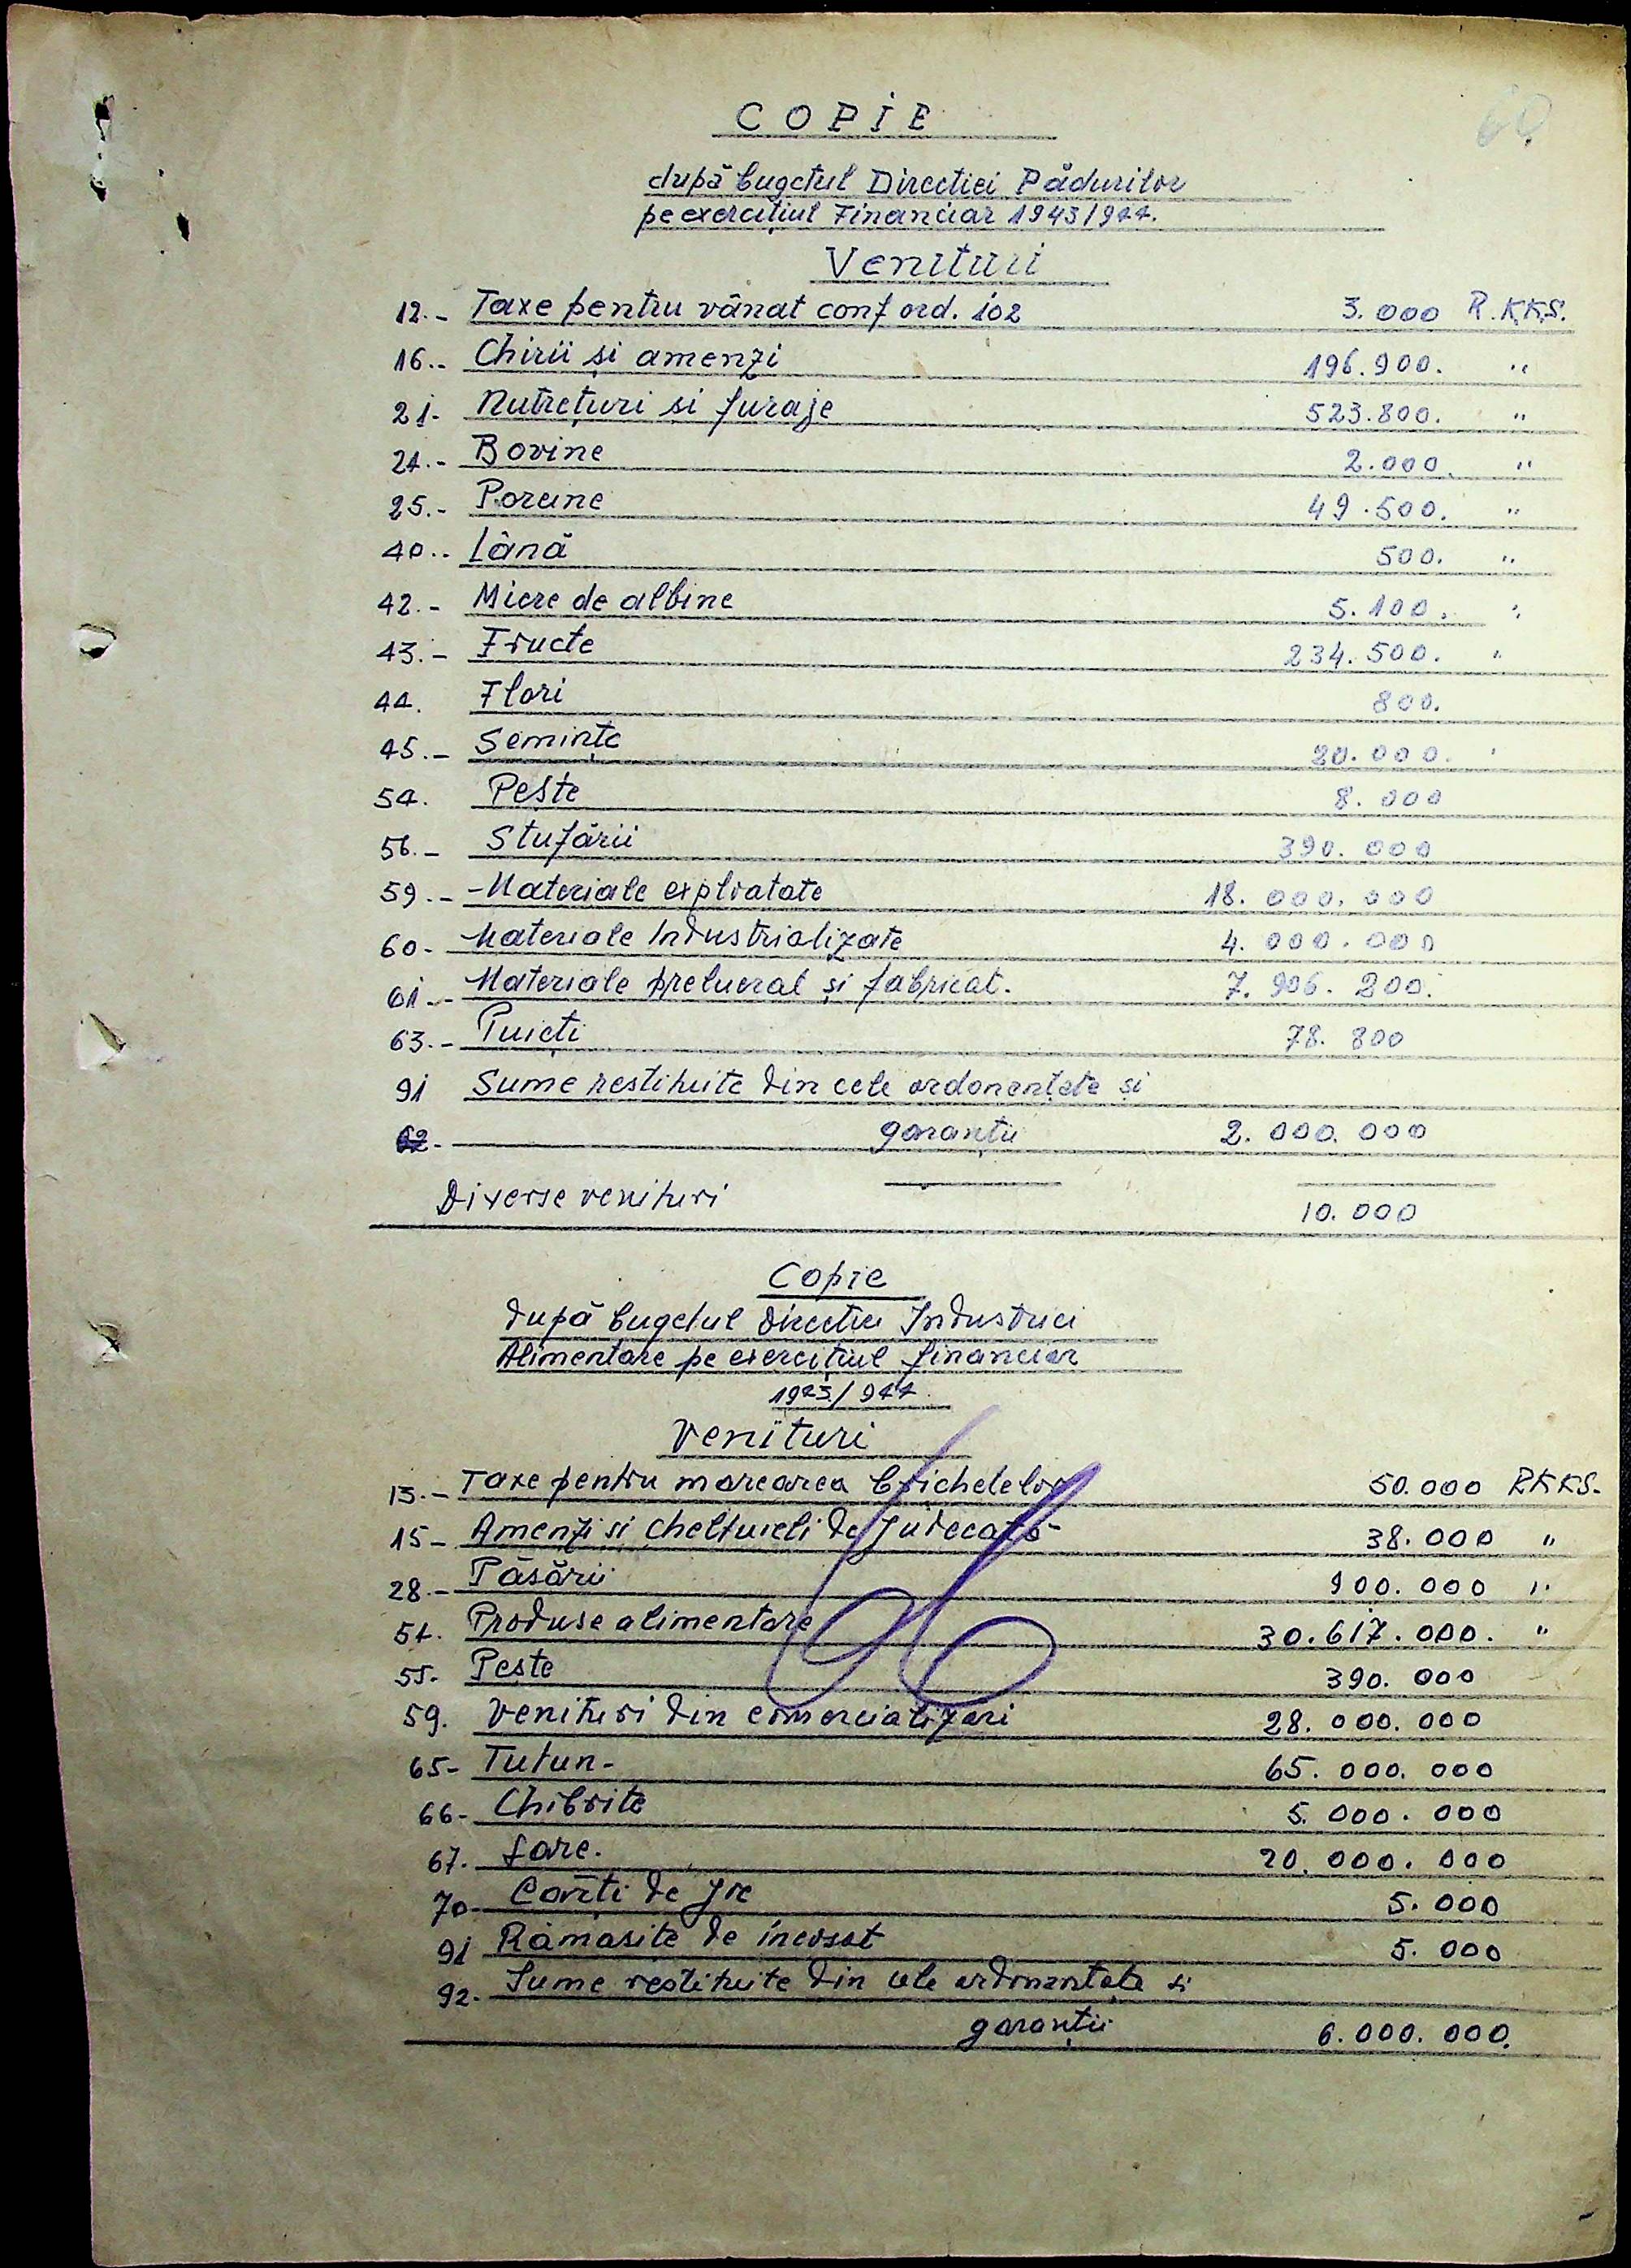 60
COPIE
după bugetul Directiei Pădurilor
pe exercițiul Financiar 1943/944.
Venituri
12.- Taxe pentru vânat conf ord. 102 3.000 R.KKS.
16.- Chirii și amenzi 196.900. "
21- Nutrețuri si furaje 523.800. "
24.- Bovine 2.000. "
25.- Porcine 49.500. "
40.. Lână 500. "
42.- Miere de albine 5.100. "
43.- Fructe 234.500. "
44. Flori 800.
45.- Semințe 20.000. "
54. Pește 8.000
56.- Stufării 390.000
59.- -Materiale exploatate 18.000.000
60- Materiale Industrializate 4.000.000
61.- Materiale prelucrat și fabricat. 7.906.200.
63.- Puieți 78.800
91 Sume restituite din cele ordonanțate și
62.- garanții 2.000.000
Diverse venituri 10.000
Copie
după bugetul Directiei Industriei
Alimentare pe exercițiul financiar
1943/944
Venituri
13.- Taxe pentru marcarea brichetelor 50.000 RKKS.
15- Amenzi și cheltuieli de judecată- 38.000 "
28.- Păsării 900.000 "
54. Produse alimentare 30.617.000. "
55- Pește 390.000
59. Venituri din comercializari 28.000.000
65- Tutun- 65.000.000
66- Chibrite 5.000.000
67. Sare. 20.000.000
70- Cărți de joc 5.000
91 Rămasite de incasat 5.000
92. Sume restituite din cele ordonanțate si
garanții 6.000.000.